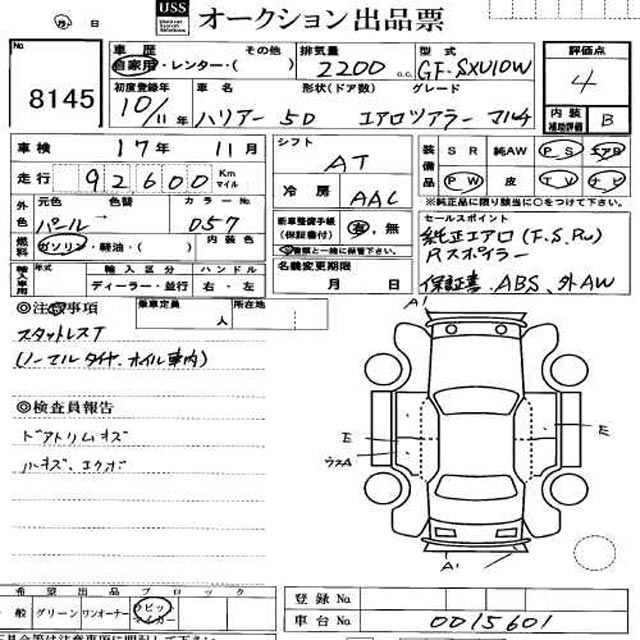 日
USS オークション出品票
No.
8145
車歴
その他
自家用・レンター・( )
排気量
2200 c.c.
型式
GF-SXU10W
評価点
4
初度登録年
10/11年
車名
ハリアー
形状(ドア数)
5D
グレード
エアロツアラー マルチ
内装
補助評価
B
車検
17年 11月
走行
92,600 Km
マイル
外色
元色
パール→
色替
カラーNo.
057
燃料
ガソリン・軽油・( )
内装色
輸入車用
年式
輸入区分
ディーラー・並行
ハンドル
右・左
シフト
AT
冷房
AAC
新車整備手帳
(保証書付)
有,無
書類と一緒に保管下さい。
名義変更期限
月 日
装備品
SR
純AW
PS
エアB
PW
皮
TV
ナビ
※純正品に限り該当に○をつけて下さい。
セールスポイント
純正エアロ(F.S.Ru)
Rスポイラー
保証書、ABS、外AW
◎注意事項
乗車定員
人
所在地
スタットレスT
(ノーマルタイヤ、ホイル車内)
◎検査員報告
ドアトリムキズ
ルキズ、エクボ
A1
E
E
ウスA
A1
希望出品ブロック
一般
グリーン
ワンオーナー
ラビット
マイカー
登録No
車台No
0015601